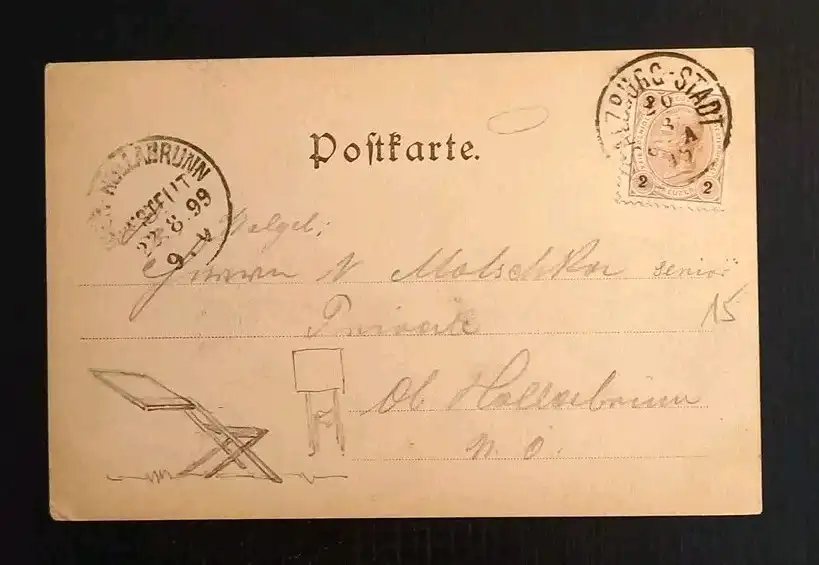 SALZBURG-STADT
20
8
Postkarte.
HOLLABRUNN
BESTELLT
22.8.99
9-V
2
2
Herrn N Motschka senior
15
Private
Ob. Hollabrunn
N. Ö.